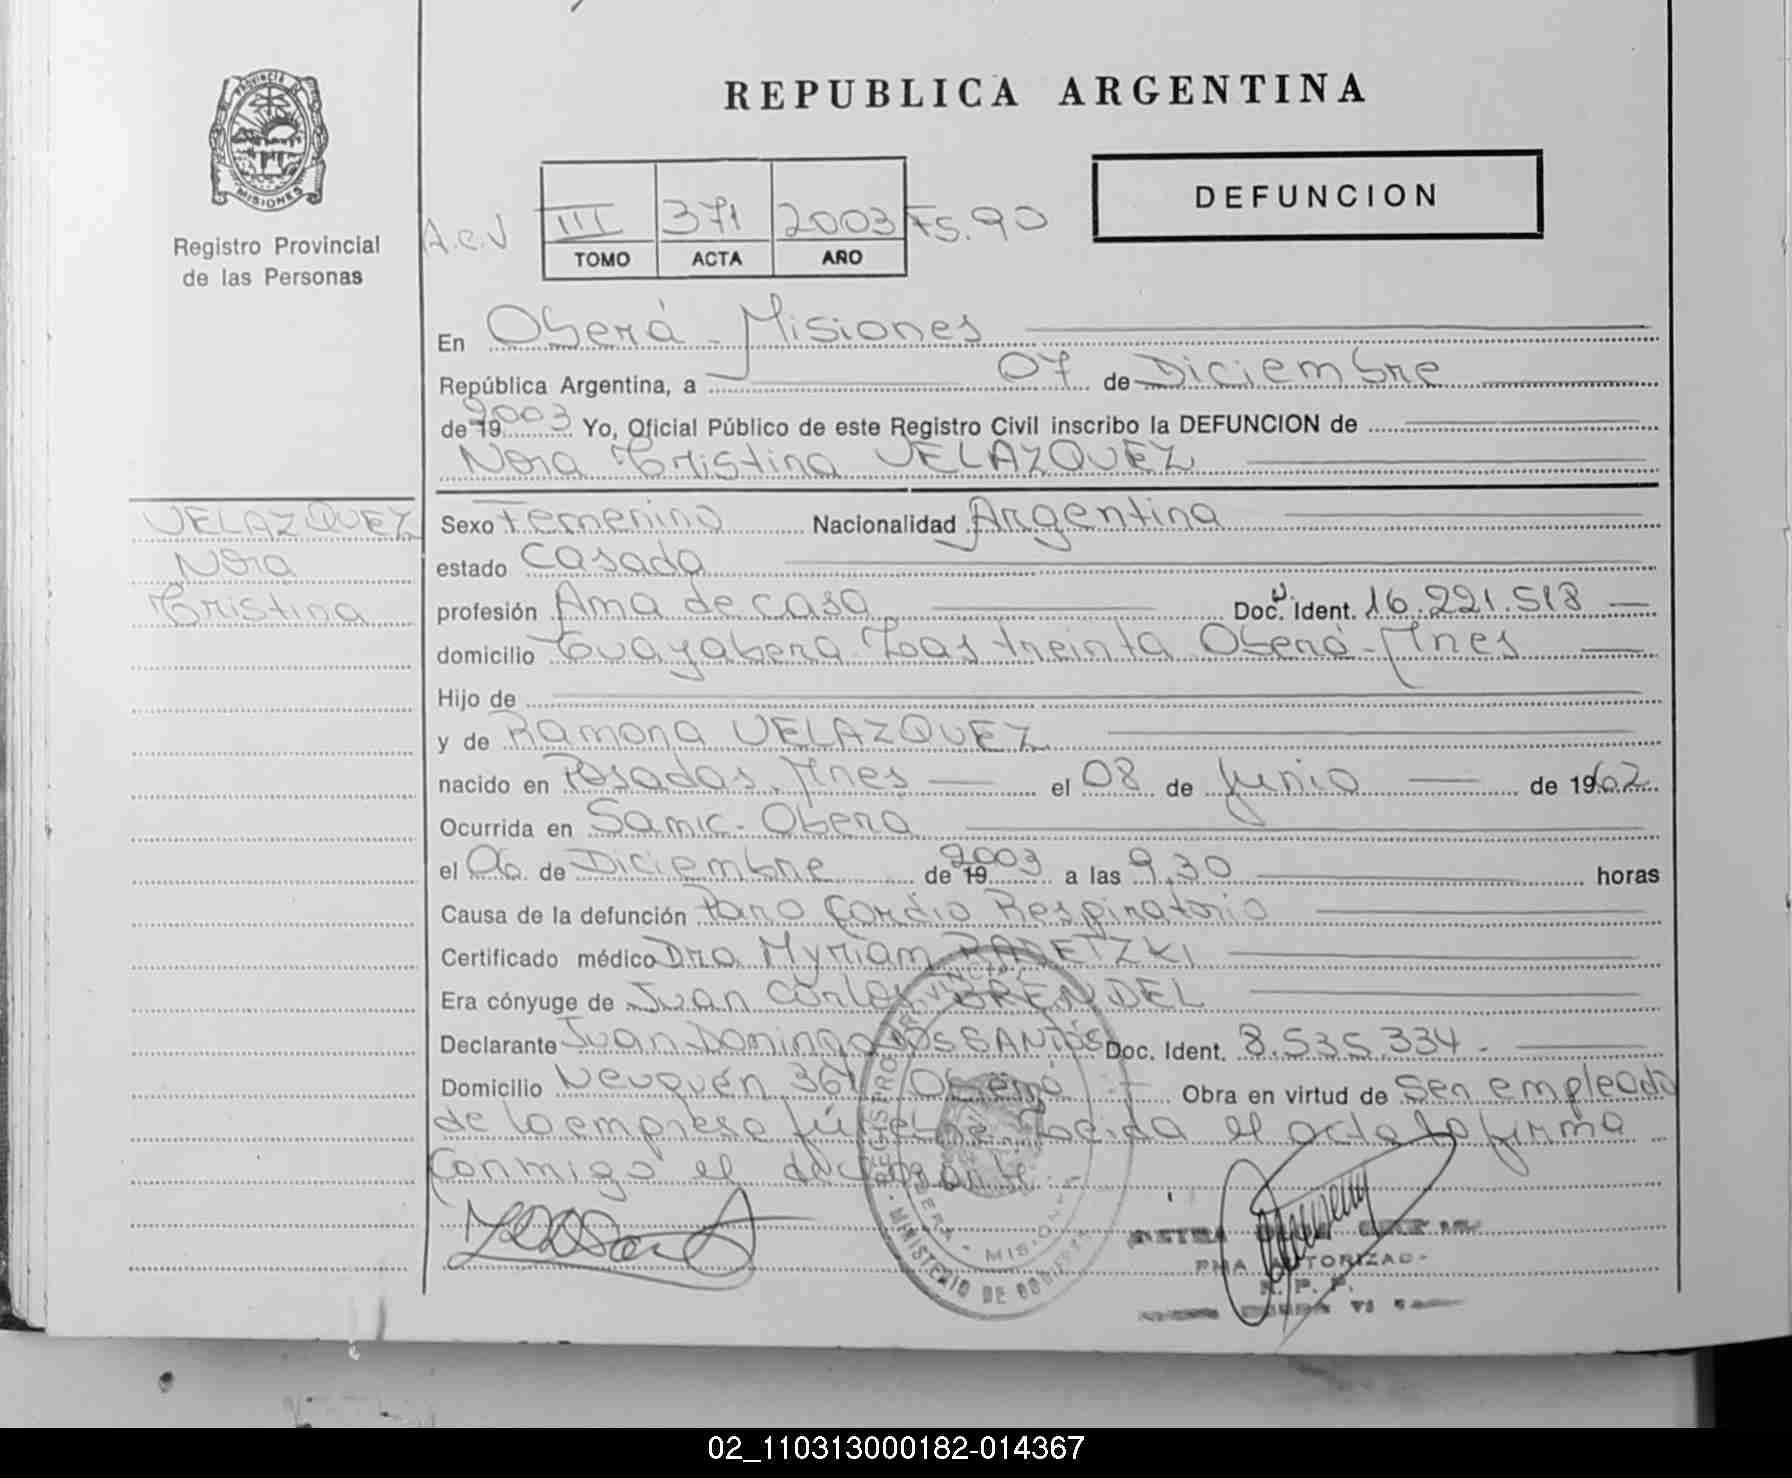 REPUBLICA ARGENTINA
PROVINCIA DE
MISIONES
Registro Provincial
de las Personas
DEFUNCION
A.c.V III 371 2003 Fs.90
TOMO ACTA AÑO
En Oberá - Misiones
República Argentina, a 07 de Diciembre
de 19 2003 Yo, Oficial Público de este Registro Civil inscribo la DEFUNCION de
Nora Cristina VELAZQUEZ
VELAZQUEZ
Nora
Cristina
Sexo Femenino Nacionalidad Argentina
estado Casada
profesión Ama de casa Doc. Ident. 16.221.518
domicilio Guayabera Las treinta Oberá - Mnes
Hijo de
y de Ramona VELAZQUEZ
nacido en Posadas, Mnes el 08 de Junio de 1962
Ocurrida en Samic - Oberá
el 06 de Diciembre de 19 2003 a las 9,30 horas
Causa de la defunción Paro Cardio Respiratorio
Certificado médico Dra Myriam RADETZKI
Era cónyuge de Juan Carlos BRENDEL
Declarante Juan Domingo DOS SANTOS Doc. Ident. 8.535.334 -
Domicilio Neuquén 361 Oberá Obra en virtud de Ser empleado
de la empresa fúnebre Leida el acta la firma
conmigo el declarante
REGISTRO PROVINCIAL
OBERA - MISIONES
MINISTERIO DE GOBIERNO
AUTORIZAD
R. P. P.
02_110313000182-014367